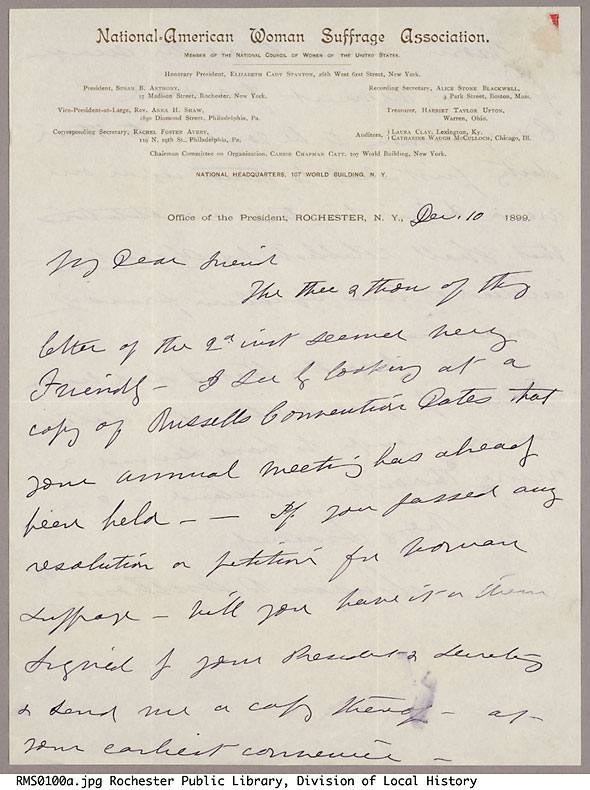 National-American Woman Suffrage Association.
MEMBER OF THE NATIONAL COUNCIL OF WOMEN OF THE UNITED STATES.
Honorary President, ELIZABETH CADY STANTON, 26th West 61st Street, New York.
President, SUSAN B. ANTHONY,
17 Madison Street, Rochester, New York.
Recording Secretary, ALICE STONE BLACKWELL,
3 Park Street, Boston, Mass.
Vice-President-at-Large, REV. ANNA H. SHAW,
1830 Diamond Street, Philadelphia, Pa.
Treasurer, HARRIET TAYLOR UPTON,
Warren, Ohio.
Corresponding Secretary, RACHEL FOSTER AVERY,
119 N. 19th St., Philadelphia, Pa.
Auditors, { LAURA CLAY, Lexington, Ky.
{ CATHARINE WAUGH McCULLOCH, Chicago, Ill.
Chairman Committee on Organization, CARRIE CHAPMAN CATT, 107 World Building, New York.
NATIONAL HEADQUARTERS, 107 WORLD BUILDING, N. Y.
Office of the President, ROCHESTER, N. Y., Dec. 10 1899.
My Dear friend
The thee & thou of thy
letter of the 2d inst seemed very
Friendly - I see by looking at a
copy of Russells Convention Dates that
your annual meeting has already
been held - — If you passed any
resolution or petition for woman
suffrage - will you have it or them
signed by your President & Secretary
& send me a copy thereof - at
your earliest convenience -
RMS0100a.jpg Rochester Public Library, Division of Local History